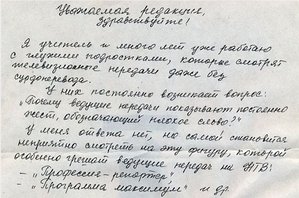 Уважаемая редакция,
здравствуйте!
Я учитель и много лет уже работаю
с глухими подростками, которые смотрят
телевизионные передачи даже без
сурдоперевода.
У них постоянно возникает вопрос:
"Почему ведущие передачи показывают постоянно
жест, обозначающий плохое слово?"
У меня ответа нет, но самой становится
неприятно смотреть на эту фигуру, которой
особенно грешат ведущие передач на НТВ:
- "Профессия-репортёр"
- "Программа максимум" и др.